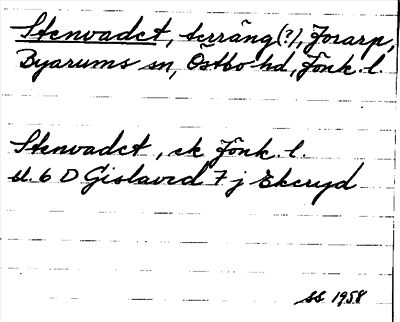 Stenvadet, terräng(?), Jorarp,
Byarums sn, Östbo hd, Jönk. l.
Stenvadet, ek Jönk. l.
bl. 6 D Gislaved 7 j Ekeryd
1958